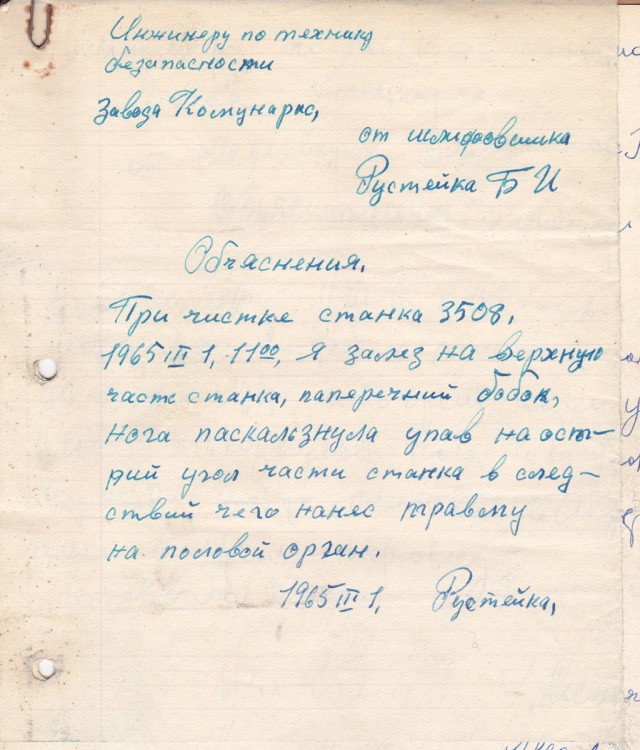 Инжинеру по технике
безапасности
Завода Комунарас,
от шлифовщика
Рустейка Б И
Объяснения.
При чистке станка 3508,
1965 III 1, 11 00, я залез на верхную
часть станка, паперечний бобок,
нога паскальзнула упав на осты-
рий угол части станка в след-
ствий чего нанес травму
на половой орган.
1965 III 1, Рустейка,